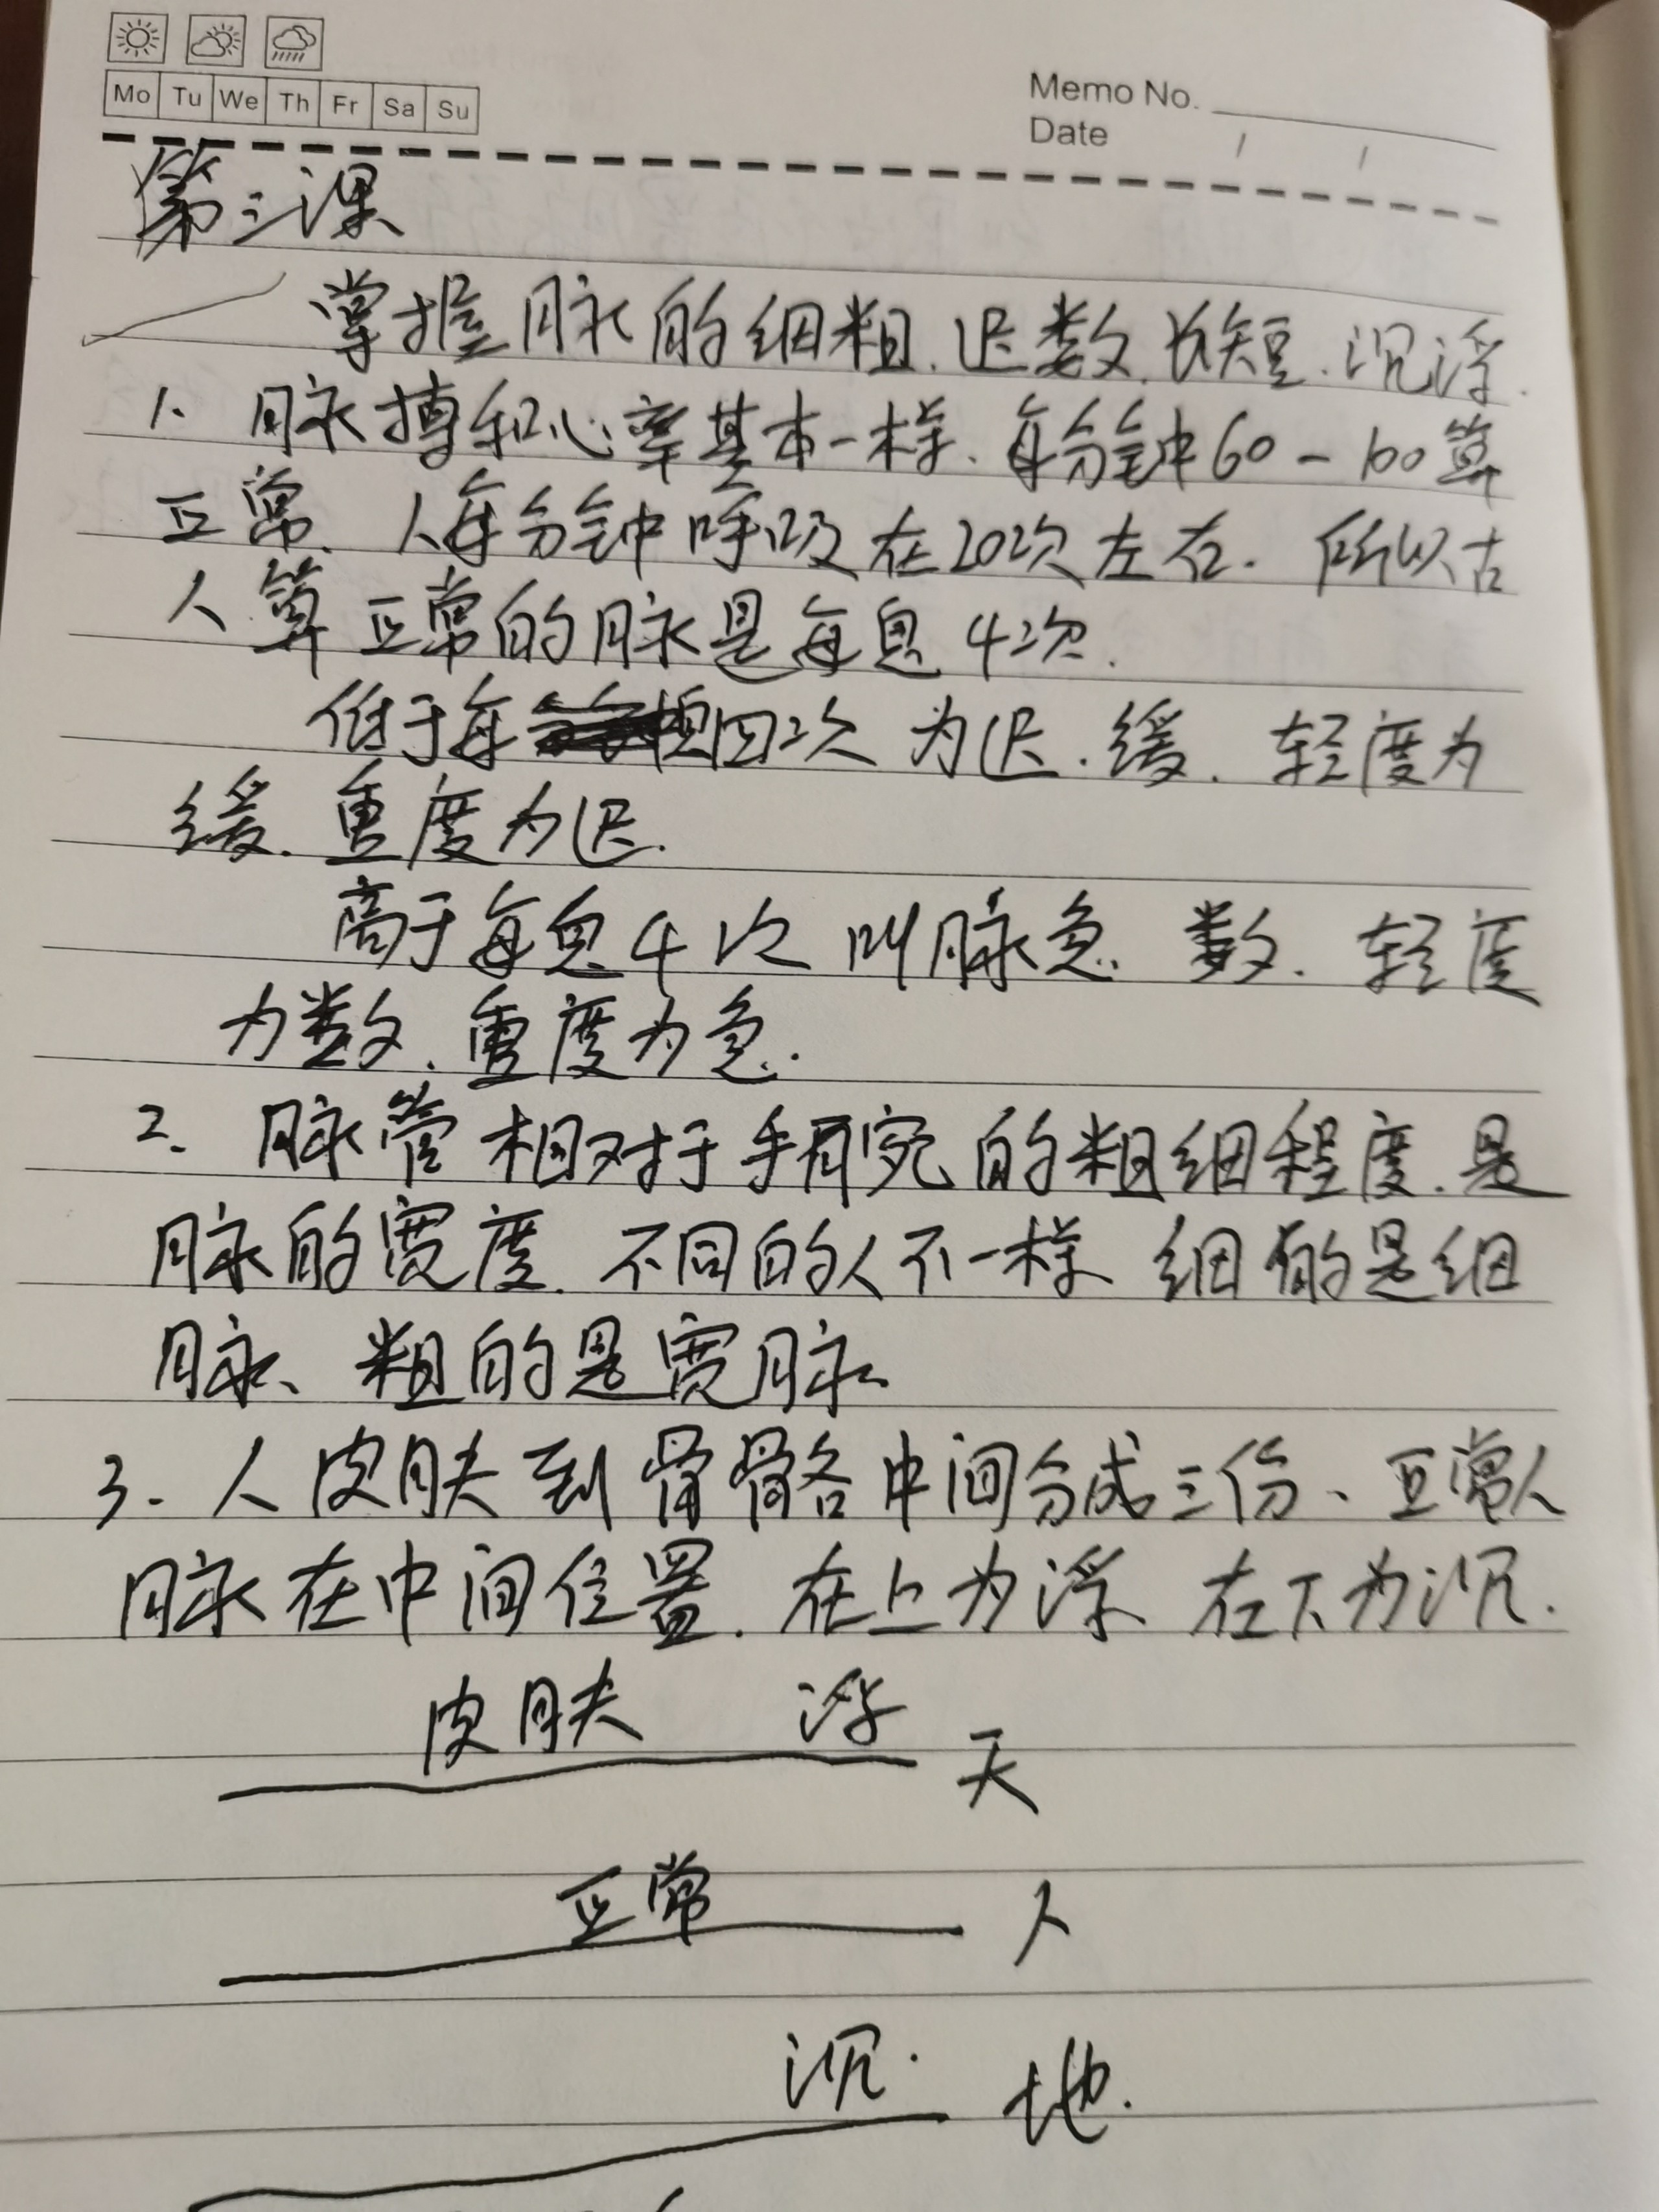 Mo Tu We Th Fr Sa Su
Memo No.
Date / /
第三课
掌握脉的细粗.迟数.长短.沉浮.
1. 脉搏和心率基本一样、每分钟60-100算
正常、人每分钟呼吸在20次左右.所以古
人算正常的脉是每息4次.
低于每息四次为迟.缓.轻度为
缓.重度为迟.
高于每息4次叫脉急.数.轻度
为数.重度为急.
2. 脉管相对于手腕的粗细程度.是
脉的宽度.不同的人不一样 细的是细
脉、粗的是宽脉.
3. 人皮肤到骨骼中间分成三份、正常人
脉在中间位置.在上为浮 在下为沉.
皮肤 浮 天
正常 人
沉. 地.